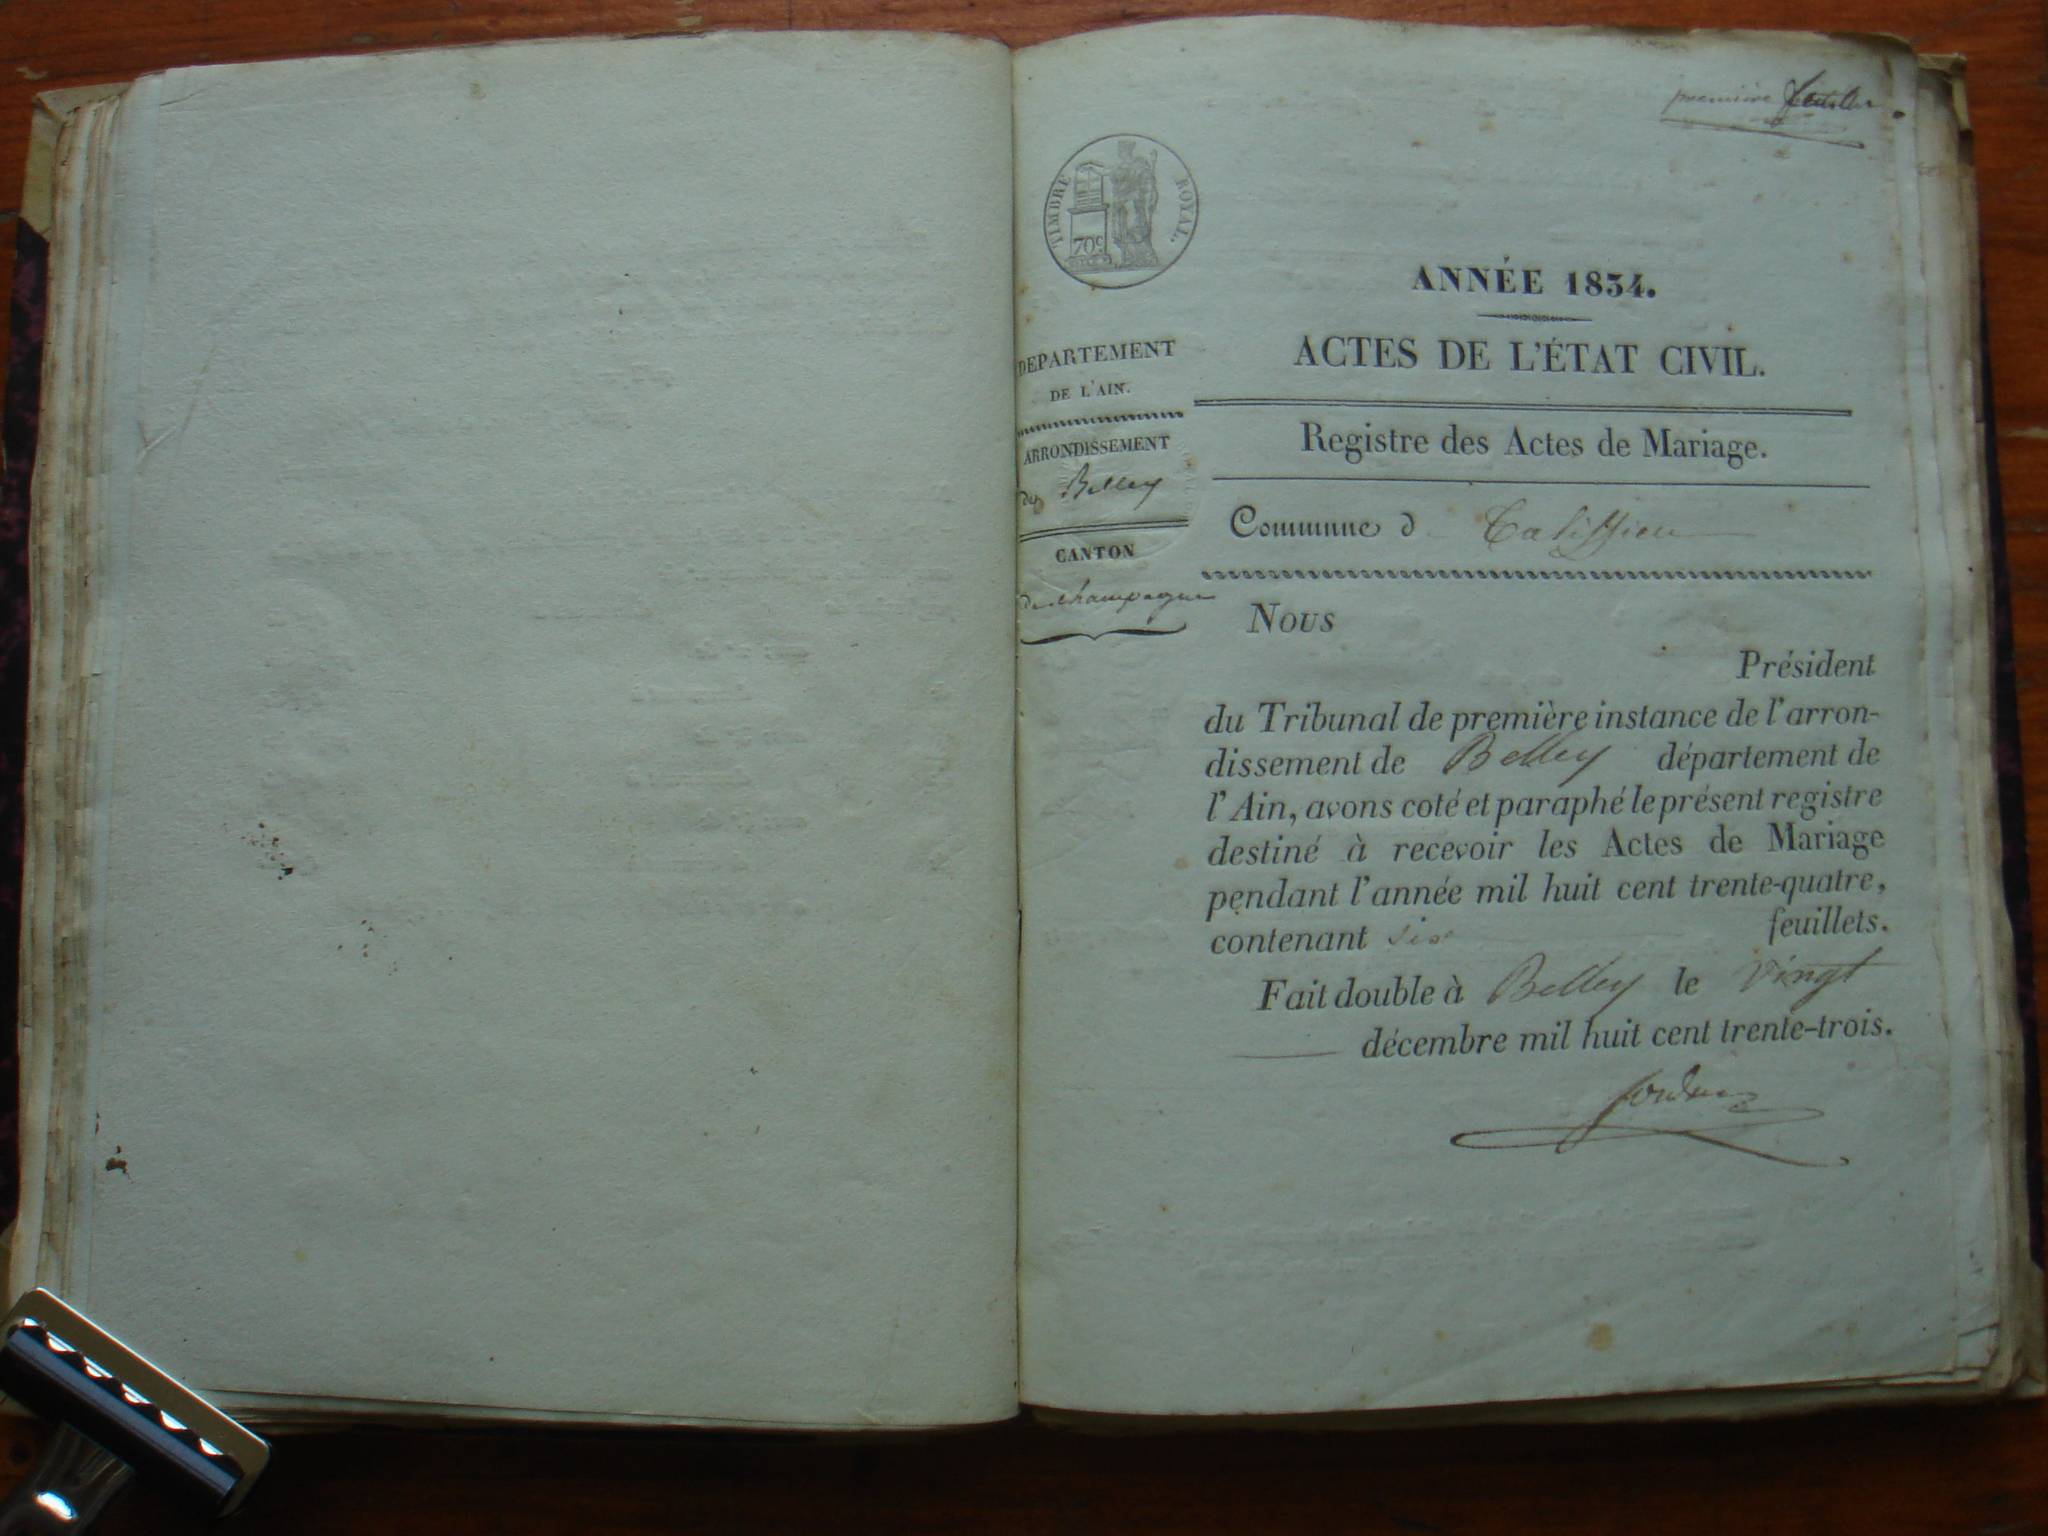 première feuillet
TIMBRE ROYAL.
70c.
ANNÉE 1834.
ACTES DE L'ÉTAT CIVIL.
DEPARTEMENT
DE L'AIN.
ARRONDISSEMENT
de Belley
CANTON
de Champagne
Registre des Actes de Mariage.
Commune d Talissieu
Nous
Président
du Tribunal de première instance de l'arron-
dissement de Belley département de
l'Ain, avons coté et paraphé le présent registre
destiné à recevoir les Actes de Mariage
pendant l'année mil huit cent trente-quatre,
contenant six feuillets.
Fait double à Belley le vingt
décembre mil huit cent trente-trois.